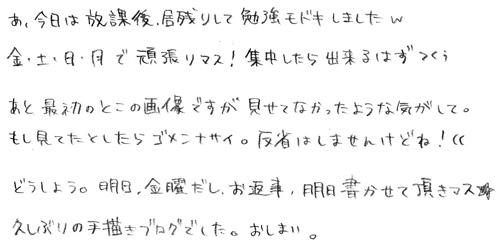 あ、今日は放課後、居残りして勉強モドキしましたw
金・土・日・月で頑張りマス!集中したら出来るはずっくぅ
あと最初のとこの画像ですが見せてなかったような気がして。
もし見てたとしたらゴメンナサイ。反省はしませんけどね!((
どうしよう。明日、金曜だし、お返事、明日書かせて頂きマス
久しぶりの手描きブログでした。おしまい。